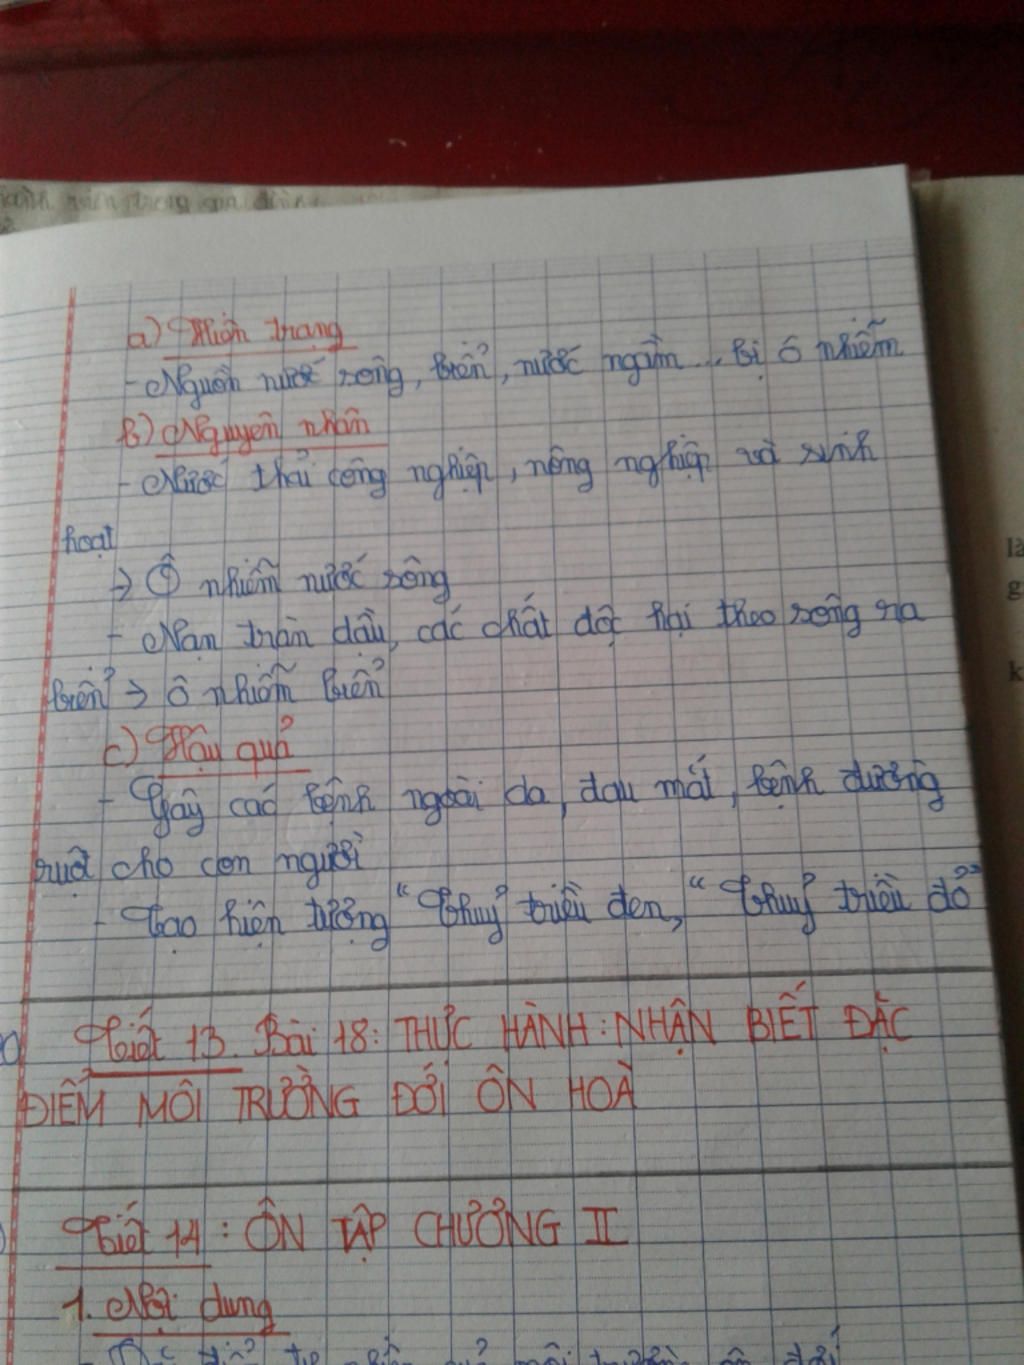 a) Hiện trạng
- Nguồn nước sông, biển, nước ngầm... bị ô nhiễm
b) Nguyên nhân
- Nước thải công nghiệp, nông nghiệp và sinh
hoạt
→ Ô nhiễm nước sông
- Nạn tràn dầu, các chất độc hại theo sông ra
biển → ô nhiễm biển
c) Hậu quả
- Gây các bệnh ngoài da, đau mắt, bệnh đường
ruột cho con người
- Tạo hiện tượng "Thuỷ triều đen, "Thuỷ triều đỏ"
Tiết 13. Bài 18: THỰC HÀNH: NHẬN BIẾT ĐẶC
ĐIỂM MÔI TRƯỜNG ĐỚI ÔN HOÀ
Tiết 14: ÔN TẬP CHƯƠNG II
1. Nội dung